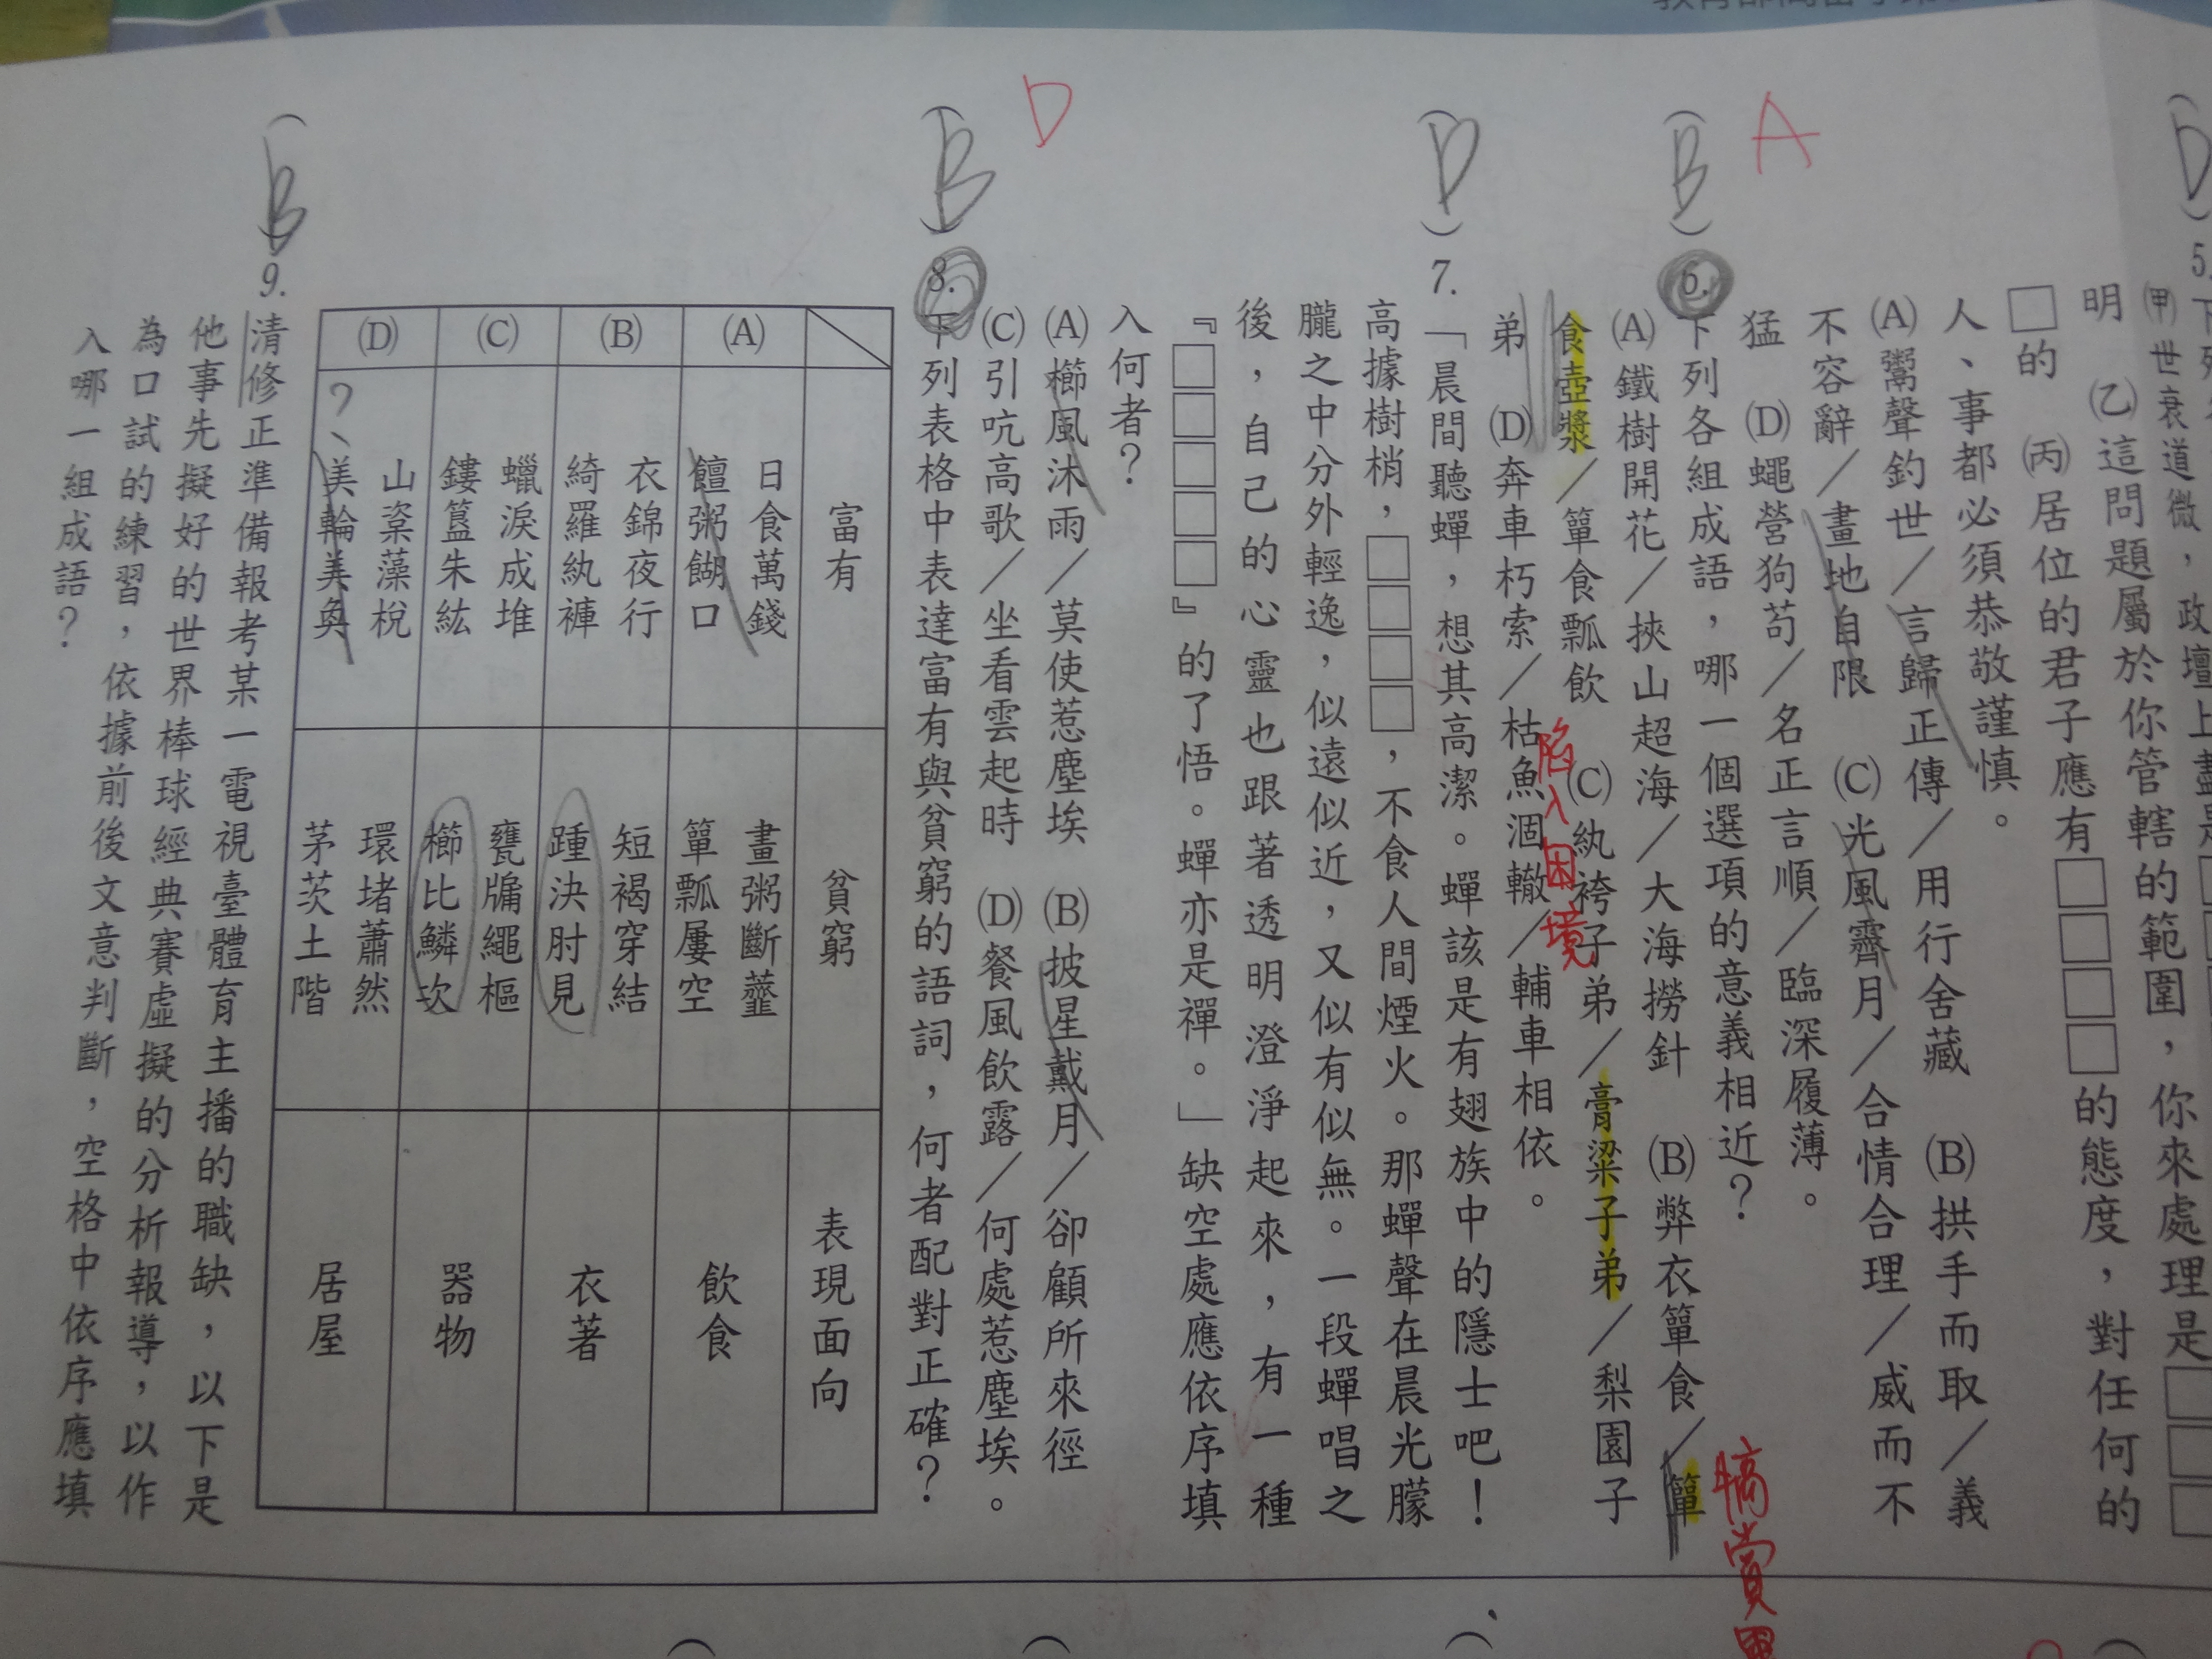 5.
㈙世衰道微，政壇上盡是
明　㈚這問題屬於你管轄的範圍，你來處理是
□的　㈛居位的君子應有□□□□的態度，對任何的
人、事都必須恭敬謹慎。
(A)鬻聲釣世／言歸正傳／用行舍藏　(B)拱手而取／義
不容辭／畫地自限　(C)光風霽月／合情合理／威而不
猛　(D)蠅營狗苟／名正言順／臨深履薄。
A
(B)6.下列各組成語，哪一個選項的意義相近？
(A)鐵樹開花／挾山超海／大海撈針　(B)弊衣簞食／簞
犒賞
食壺漿／簞食瓢飲　(C)紈袴子弟／膏粱子弟／梨園子
陷入困境
弟　(D)奔車朽索／枯魚涸轍／輔車相依。
(D)7.「晨間聽蟬，想其高潔。蟬該是有翅族中的隱士吧！
高據樹梢，□□□□，不食人間煙火。那蟬聲在晨光朦
朧之中分外輕逸，似遠似近，又似有似無。一段蟬唱之
後，自己的心靈也跟著透明澄淨起來，有一種
『□□□□□』的了悟。蟬亦是禪。」缺空處應依序填
入何者？
(A)櫛風沐雨／莫使惹塵埃　(B)披星戴月／卻顧所來徑
(C)引吭高歌／坐看雲起時　(D)餐風飲露／何處惹塵埃。
D
(B)8.下列表格中表達富有與貧窮的語詞，何者配對正確？
富有　貧窮　表現面向
(A)　日食萬錢　饘粥餬口　畫粥斷虀　簞瓢屢空　飲食
(B)　衣錦夜行　綺羅紈褲　短褐穿結　踵決肘見　衣著
(C)　蠟淚成堆　鏤簋朱紘　甕牖繩樞　櫛比鱗次　器物
(D)　山楶藻梲　？、美輪美奐　環堵蕭然　茅茨土階　居屋
(B)9.清修正準備報考某一電視臺體育主播的職缺，以下是
他事先擬好的世界棒球經典賽虛擬的分析報導，以作
為口試的練習，依據前後文意判斷，空格中依序應填
入哪一組成語？